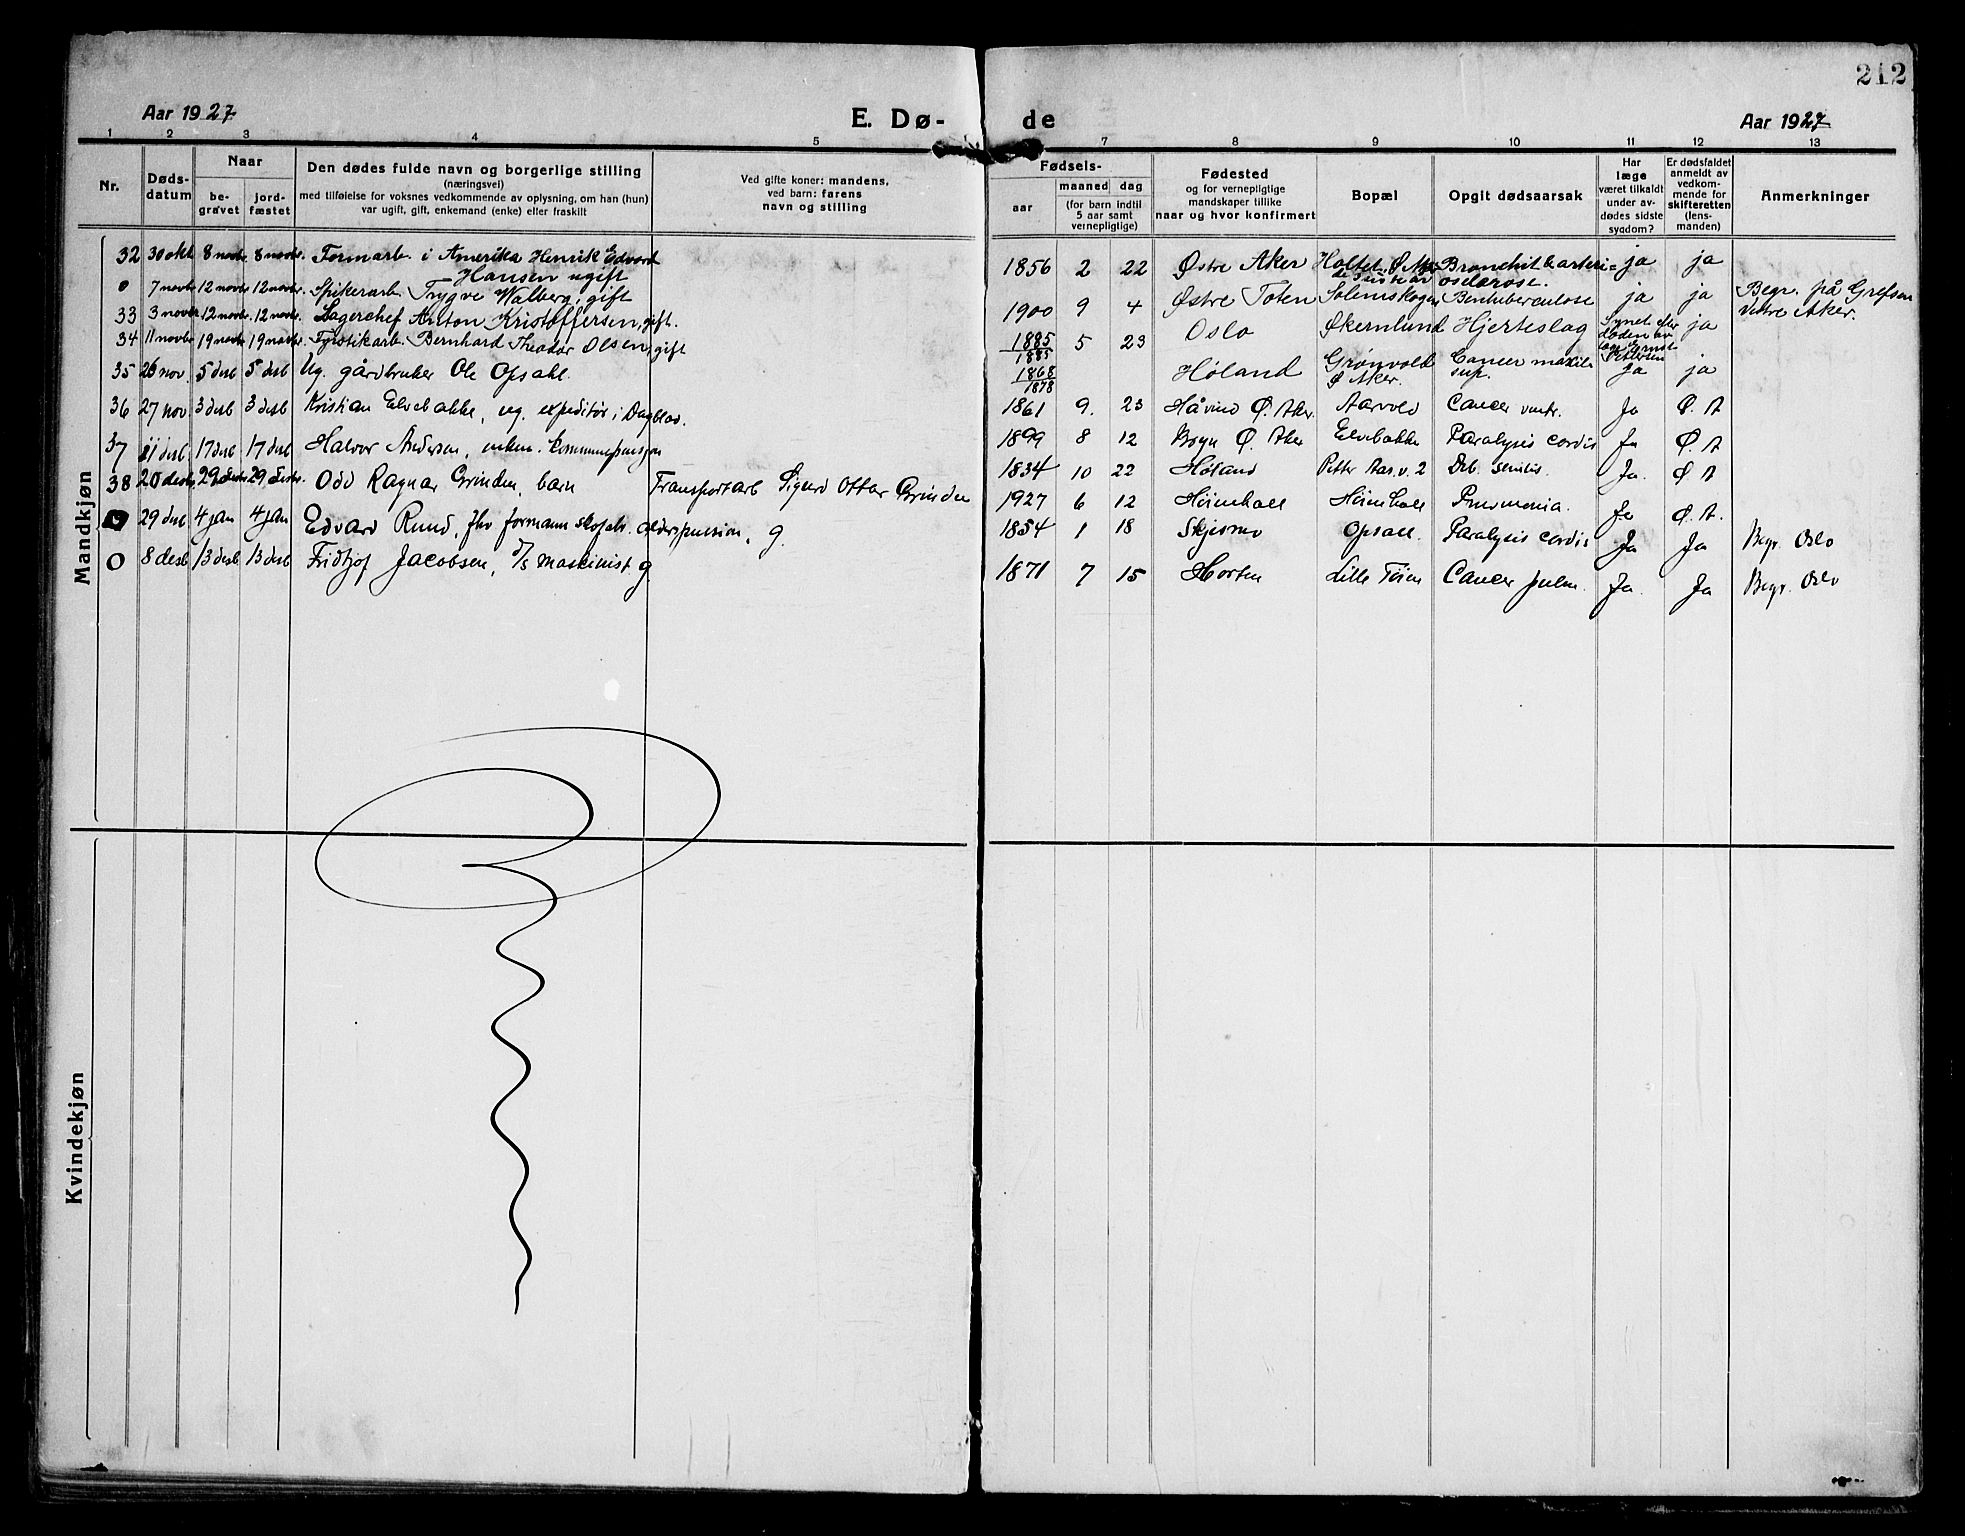 212
Aar 1927
E. Dø-
de
Aar 1927
1 2 3 4 5 7 8 9 10 11 12 13
Nr.
Døds-
datum
Naar
be-
gravet
jord-
fæstet
Den dødes fulde navn og borgerlige stilling
(næringsvei)
med tilføielse for voksnes vedkommende av oplysning, om han (hun)
var ugift, gift, enkemand (enke) eller fraskilt
Ved gifte koner: mandens,
ved barn: farens
navn og stilling
Fødsels-
aar
maaned dag
(for barn indtil
5 aar samt
vernepligtige)
Fødested
og for vernepligtige
mandskaper tillike
naar og hvor konfirmert
Bopæl
Opgit dødsaarsak
Har
læge
været tilkaldt
under av-
dødes sidste
sygdom?
Er dødsfaldet
anmeldt av
vedkom-
mende for
skifteretten
(lens-
manden)
Anmerkninger
Mandkjøn
32 30 okt 8 novbr. 8 novbr. Formarb. i Amerika Henrik Edvard
Hansen ugift 1856 2 22 Østre Aker Ø. Aker Bronchit & arteri=
osclerose. ja ja
0 7 novbr 12 novbr 12 novbr. Spikerarb. Trygve Walberg, gift 1900 9 4 Østre Toten Solemskogen Bentuberculose ja ja Begr. på Grefsen
Vestre Aker.
33 3 novbr 12 novbr. 12 novbr. Lagerchef Anton Kristoffersen, gift. 1885
1885 5 23 Oslo Økernlund Hjerteslag Synet efter
døden av
ja
34 11 novbr 19 novbr 19 novbr. Fyrstikarb. Bernhard Theodor Olsen, gift 1868
1878 Høland Grønvold
Ø Aker. Cancer maxile
sup. Ja ja
35 26 nov. 5 desb 5 desb Ug. gårdbruker Ole Opsahl. 1861 9. 23 Håvind Ø. Aker. Aarvold Cancer ventr. Ja Ø. A
36 27 nov 3 desb 3 desb Kristian Elvebakke, ug. expeditør i Dagblad. 1899 8 12 Bogn Ø. Aker Elvebakke Paralysis cordis Ja Ø. A
37 11 desb 17 desb 17 desb Halvor Andersen, enkem. kommunepensjon 1834 10 22 Høland Petter Aas. v. 2 Deb. senilis. Ja. Ø A
38 20 desbr 29 desbr 29 desbr. Odd Ragnar Grinden, barn Transportarb Sigurd Ottar Grinden 1927 6 12 Høienhall Høienhall Pneumonia. Ja Ø. A.
29 desb 4 jan 4 jan Edvard Ruud, fhv formann skofabr. alderspension, g. 1854 1 18 Skjesmo Opsall. Paralysis cordis Ja Ja Begr. Oslo
0 8 desb 13 desb 13 desb Fridtjof Jacobsen, d/s maskinist. g 1871 7 15 Horten Lille Tøien Cancer pulm. Ja. Ja Begr. Oslo
Kvindekjøn